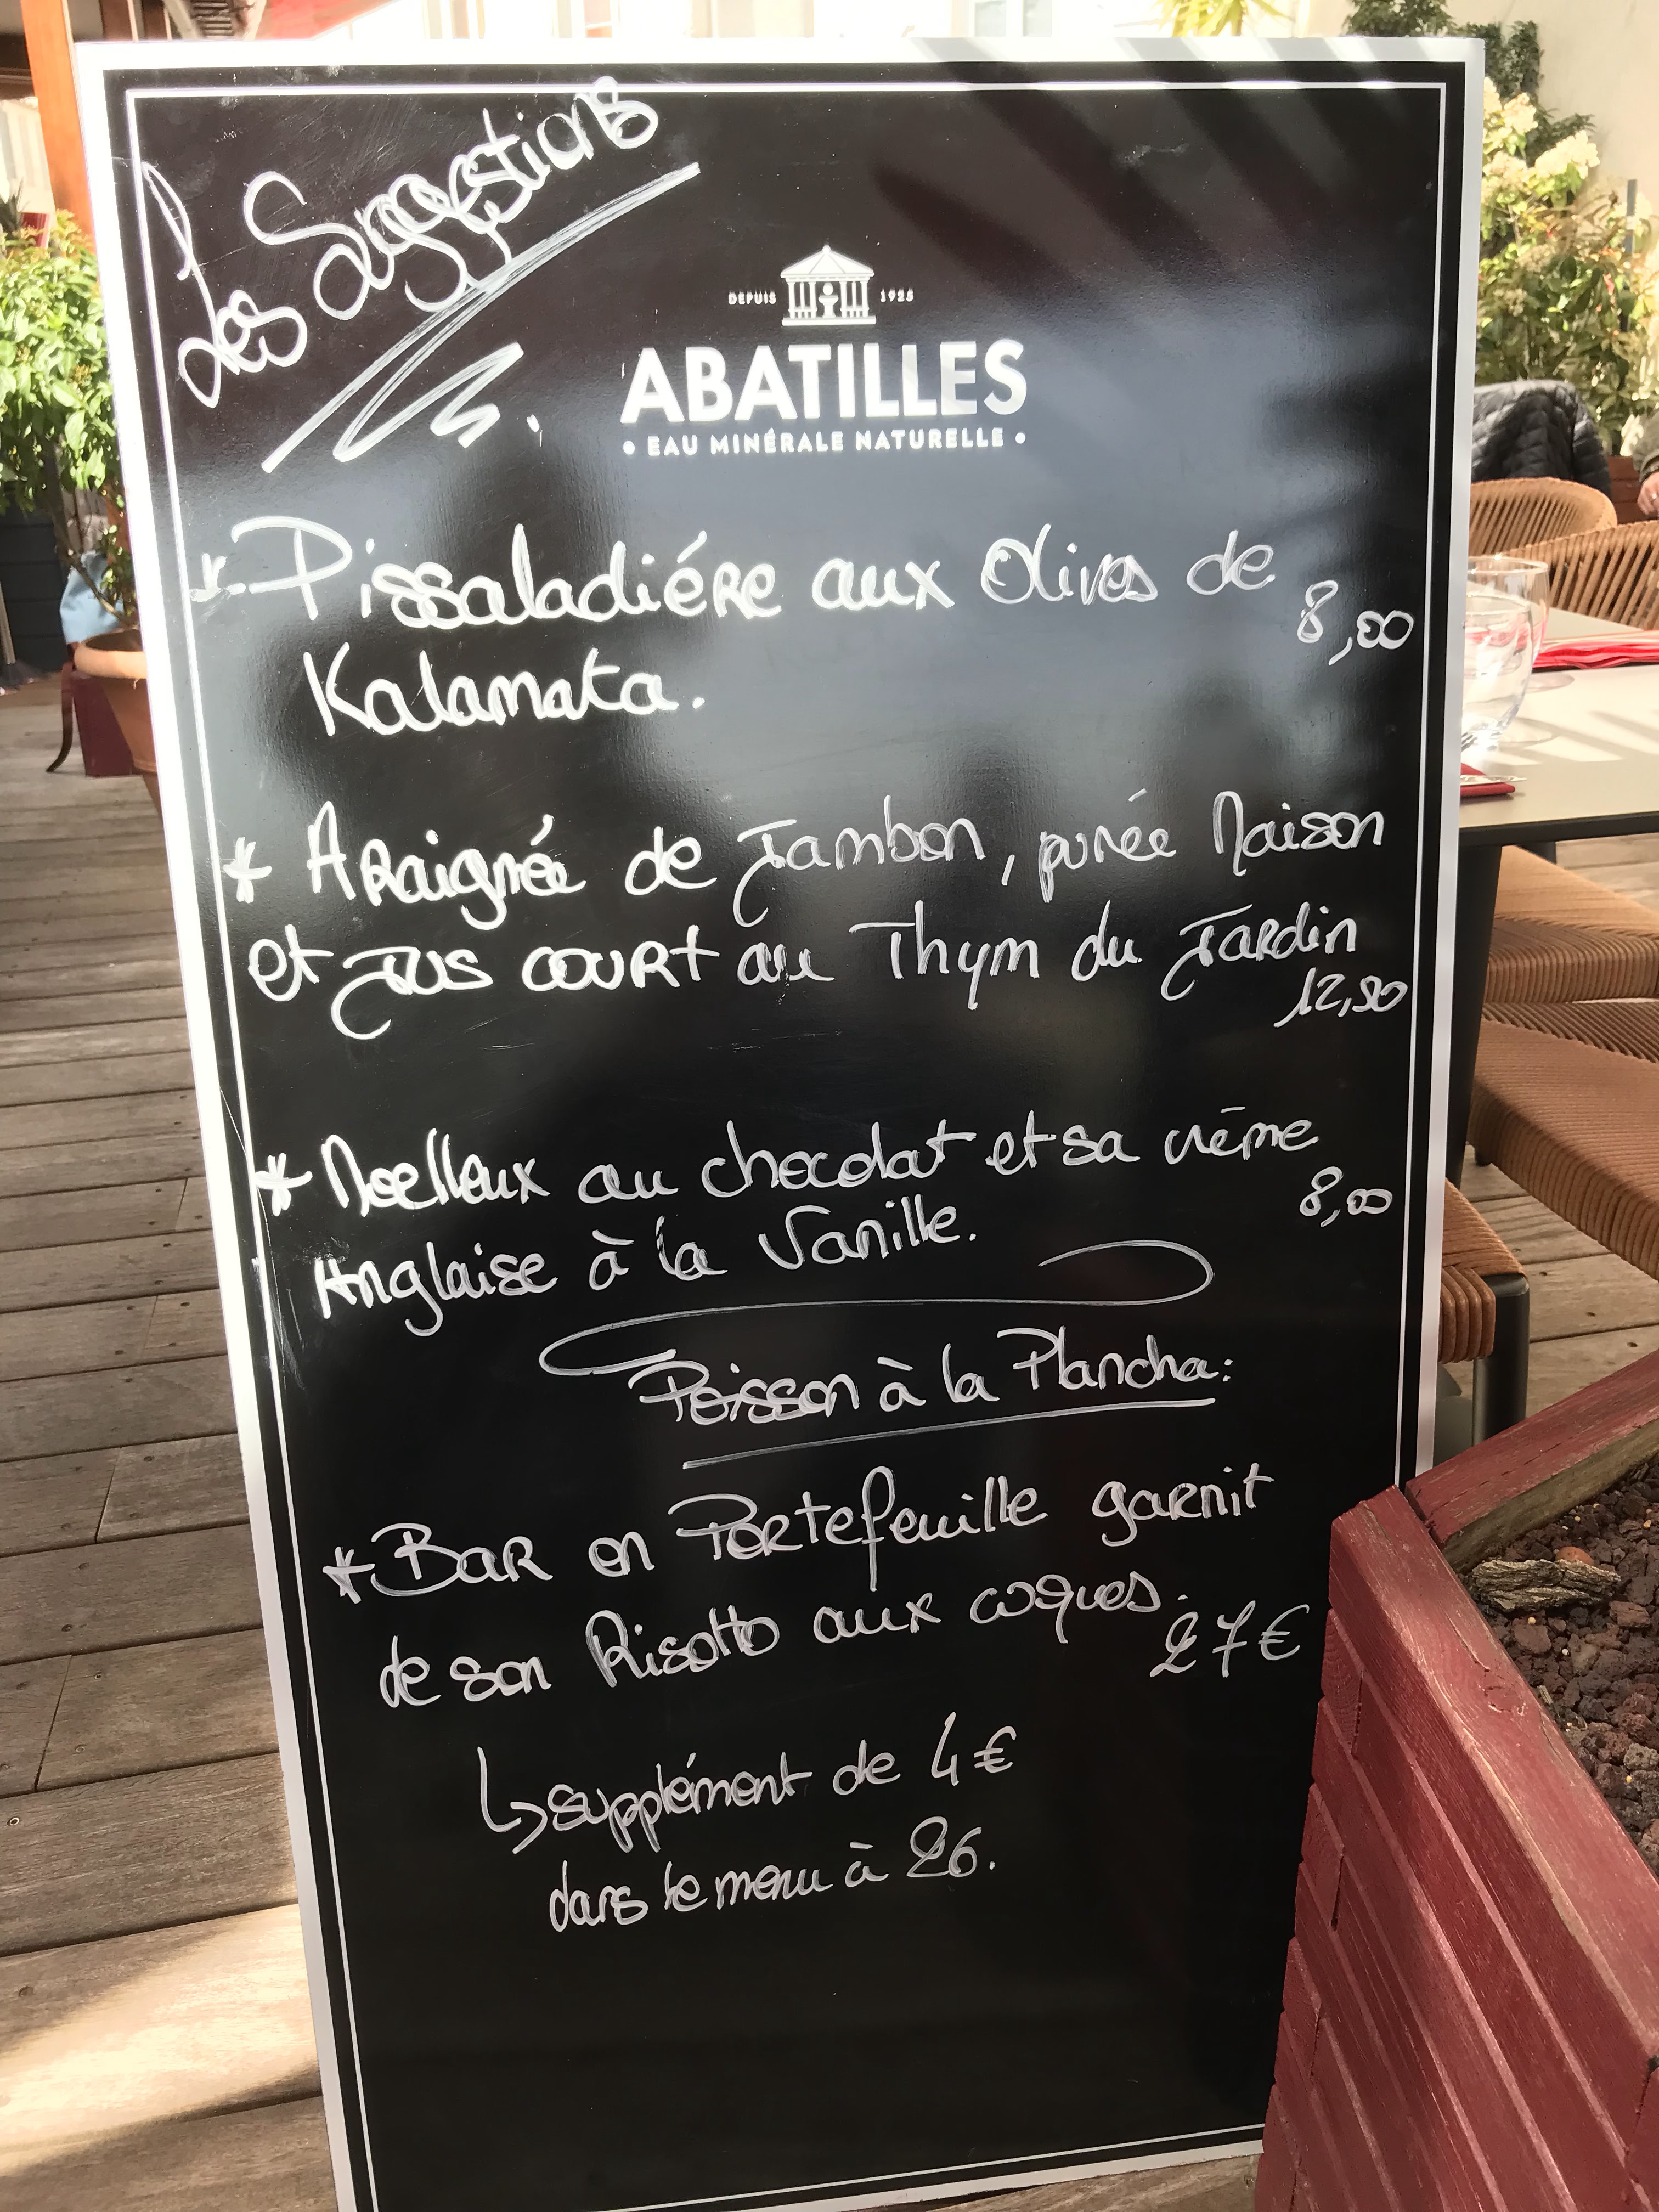 Les Suggestions
DEPUIS 1925
ABATILLES
• EAU MINÉRALE NATURELLE •
* Pissaladiére aux Olives de
8,00
Kalamata.
* Araignée de Jambon, purée Maison
et Jus court au Thym du Jardin
12,90
* Moelleux au chocolat et sa crème
8,00
Anglaise à la Vanille.
Poisson à la Plancha:
* Bar en Portefeuille garnit
de son Risotto aux coques.
27€
↳ supplément de 4€
dans le menu à 26.